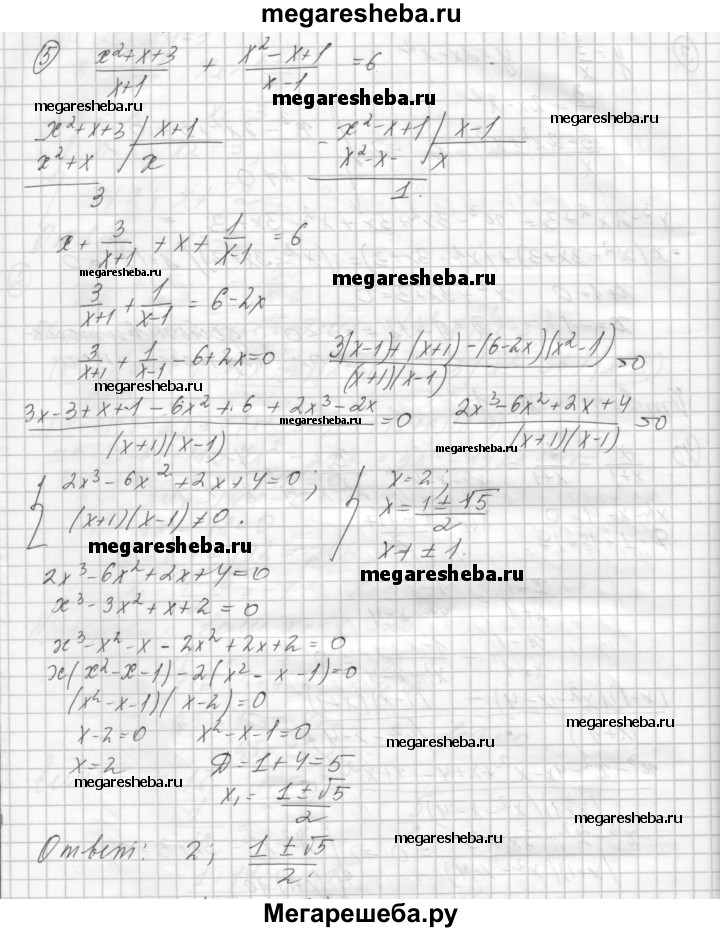 megaresheba.ru
5) (x²+x+3)/(x+1) + (x²-x+1)/(x-1) = 6
megaresheba.ru megaresheba.ru megaresheba.ru
x²+x+3 | x+1 - x²-x+1 | x-1
x²+x | x x²-x- | x
3 1.
x + 3/(x+1) + x + 1/(x-1) = 6
megaresheba.ru megaresheba.ru
3/(x+1) + 1/(x-1) = 6-2x
3/(x+1) + 1/(x-1) - 6+2x=0 (3(x-1)+(x+1)-(6-2x)(x²-1))/((x+1)(x-1)) =0
megaresheba.ru
(3x-3+x+1-6x²+6+2x³-2x)/((x+1)(x-1)) =0 (2x³-6x²+2x+4)/((x+1)(x-1)) =0
{ 2x³-6x²+2x+4=0; { x=2;
(x+1)(x-1)≠0. x=(1±√5)/2
x≠±1.
megaresheba.ru megaresheba.ru
2x³-6x²+2x+4=0
x³-3x²+x+2=0
x³-x²-x-2x²+2x+2=0
x(x²-x-1)-2(x²-x-1)=0
(x²-x-1)(x-2)=0
megaresheba.ru
x-2=0 x²-x-1=0
megaresheba.ru
x=2 Д=1+4=5
megaresheba.ru
x₁=(1±√5)/2
megaresheba.ru
megaresheba.ru
Ответ: 2; (1±√5)/2.
Мегарешеба.ру